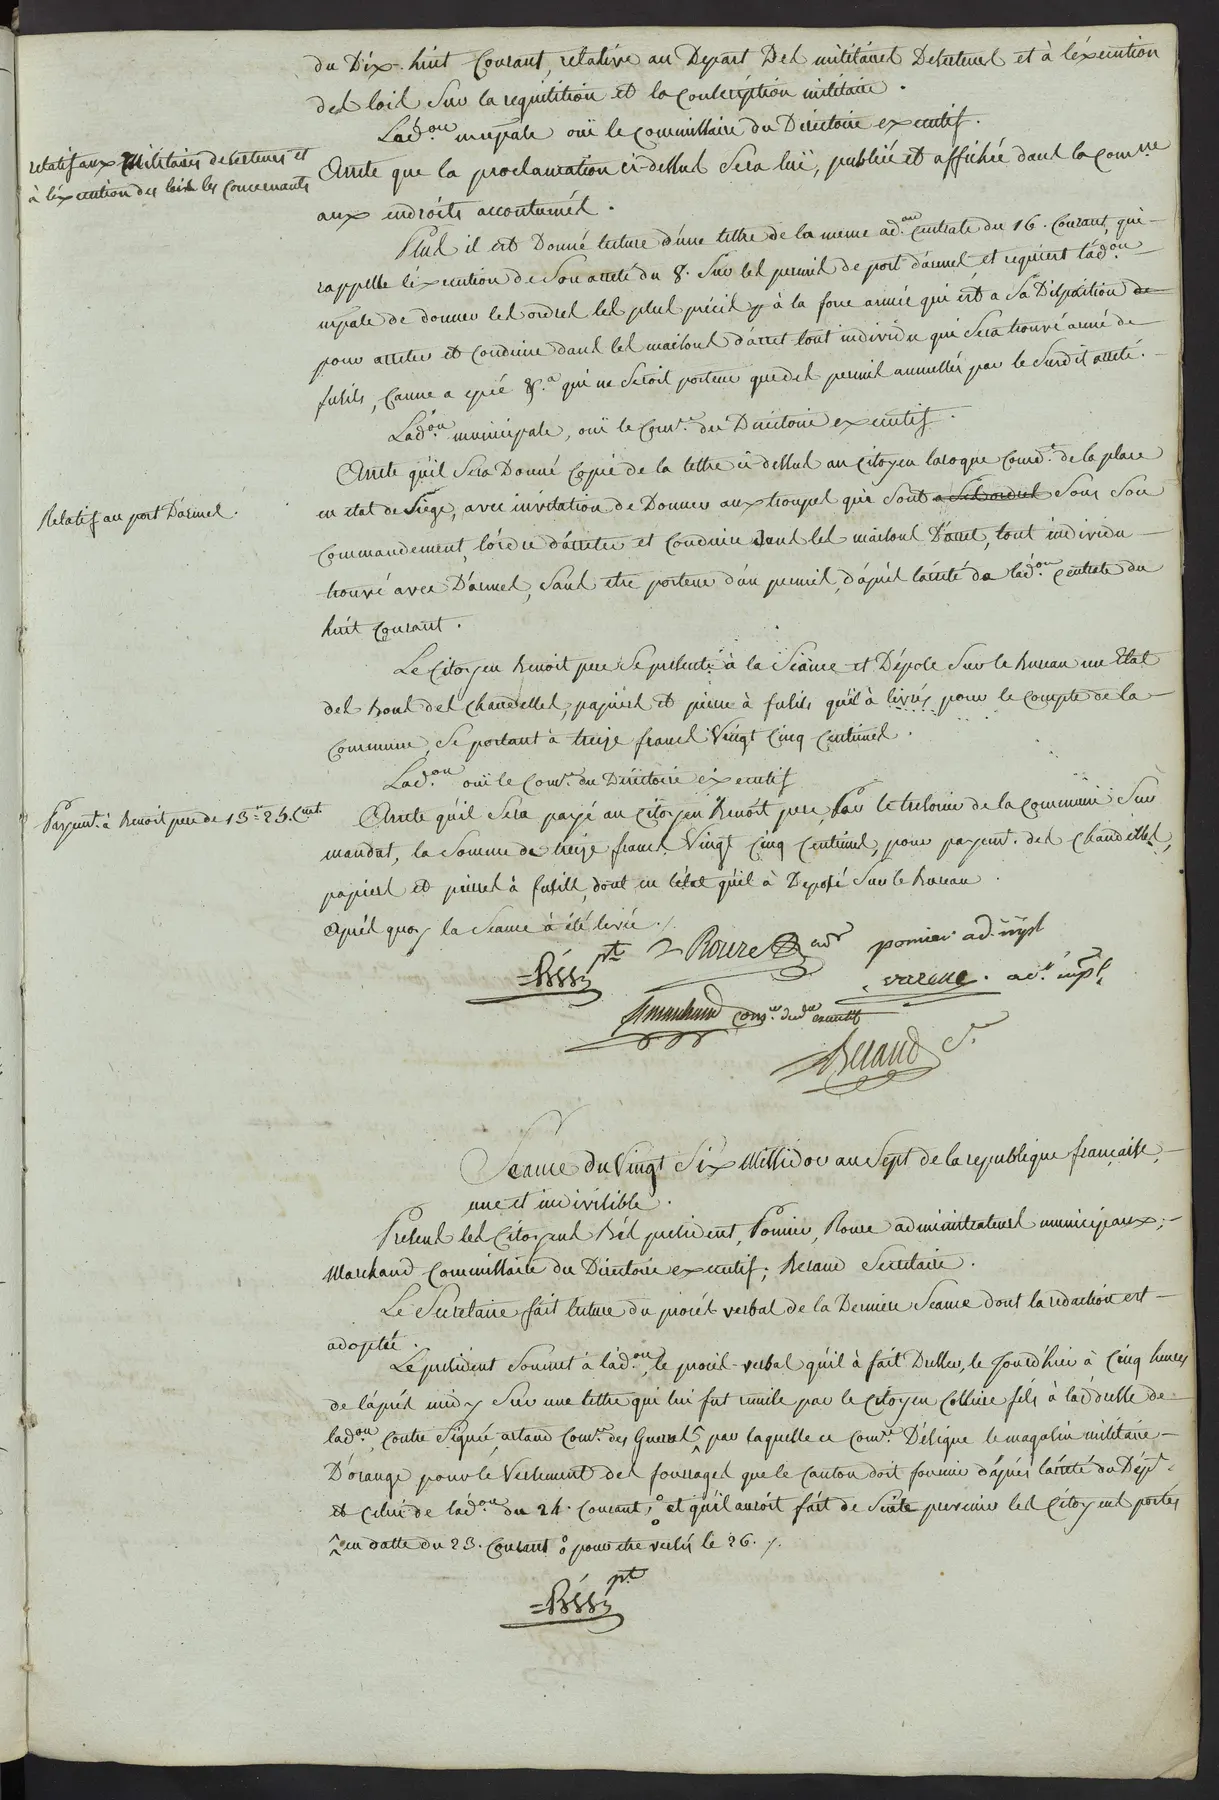 du Dix-huit Courant, relative au Depart Des militaires Deserteurs et à léxecution
des lois Sur la requisition et la Conscription militaire.
Lad.on mupale ouï le Commissaire du Directoire executif.
relatif aux Militaires deserteurs et
à léxecution des loix les Concernants
Arrete que la proclamation ci-dessus Sera lue, publiée et affichée dans la Com.ne
aux endroits accoutumés.
Plus il est Donné lecture d'une lettre de la meme ad.on Centrale du 16. Courant, qui
rappelle léxecution de Son arreté du 8. Sur les permis de port d'armes et requiert lad.on
mpale de donner les ordres les plus précis y à la force armée qui est a Sa Disposition de
pour arreter et Conduire dans les maisons d'arret tout individu qui Sera trouvé armé de
fusils, Canne a epée &.a qui ne Seroit porteur que des permis annullés par le Susdit arreté.
Lad.on municipale, ouï le Com.re du Directoire executif.
Arrete quil Sera Donné Copie de la lettre ci-dessus au Citoyen laroque Comd.t de la place
Relatif au port D'armes.
en etat de Siége, avec invitation de Donner aux troupes qui Sont a Ses ordres Sous Son
Commandement, lórdre d'arreter et Conduire Dans les maisons D'arret, tout individu
trouvé avec D'armes, Sans etre porteur d'un permis, d'aprés larreté de lad.on Centrale du
huit Courant.
Le Citoyen Benoit pere Se présente à la Séance et Dépose Sur le Bureau un Etat
des Bons des Chandelles, papiers et pierre à fusils qu'il à livrés pour le Compte de la
Commune, Se portant à treize francs Vingt Cinq Centimes.
Lad.on ouï le Com.re du Directoire éxecutif
Payem.t à Benoit pere de 13.f 25. Cmes.
Arrete qu'il Sera payé au Citoyen Benoit pere, Par le tresorier de la Commune Sur
mandat, la Somme de treize francs Vingt Cinq Centimes, pour payem.t des Chandelles,
papiers et pierres à fusils, dont en létat quil à Deposé Sur le Bureau.
Aprés quoy la Séance à été levée.
Béss p.t Roure ad.r pomier ad. mpl
varenne. ad.r mpl.
Marchand Com.re du d.re executif
Beraud S.re
Séance du Vingt Six Messidor an Sept de la republique française,
une et indivisible.
Présens les Citoyens Bés president, Pomier, Roure administrateurs municipaux;
Marchand Commissaire du Directoire executif; Beraud Secretaire.
Le Secretaire fait lecture du procés verbal de la Derniere Séance dont la redaction est
adoptée.
Le president Soumet à lad.on, le procés-verbal qu'il à fait Dresser, le jourd'hier à Cinq heures
de lápres midy Sur une lettre qui lui fut remise par le Citoyen Collieu fils à ládresse de
lad.on, Contre Signée, artaud Com.re des Guerres, par laquelle ce Com.re Désigne le magasin militaire
D'orange pour le Versement des fourrages que le Canton doit fournir d'aprés larreté du Dép.t
et Celui de lad.on du 24. Courant, et qu'il auroit fait de Suite prevenir les Citoyens portes
en datte du 23. Courant pour etre versés le 26.
Béss p.t